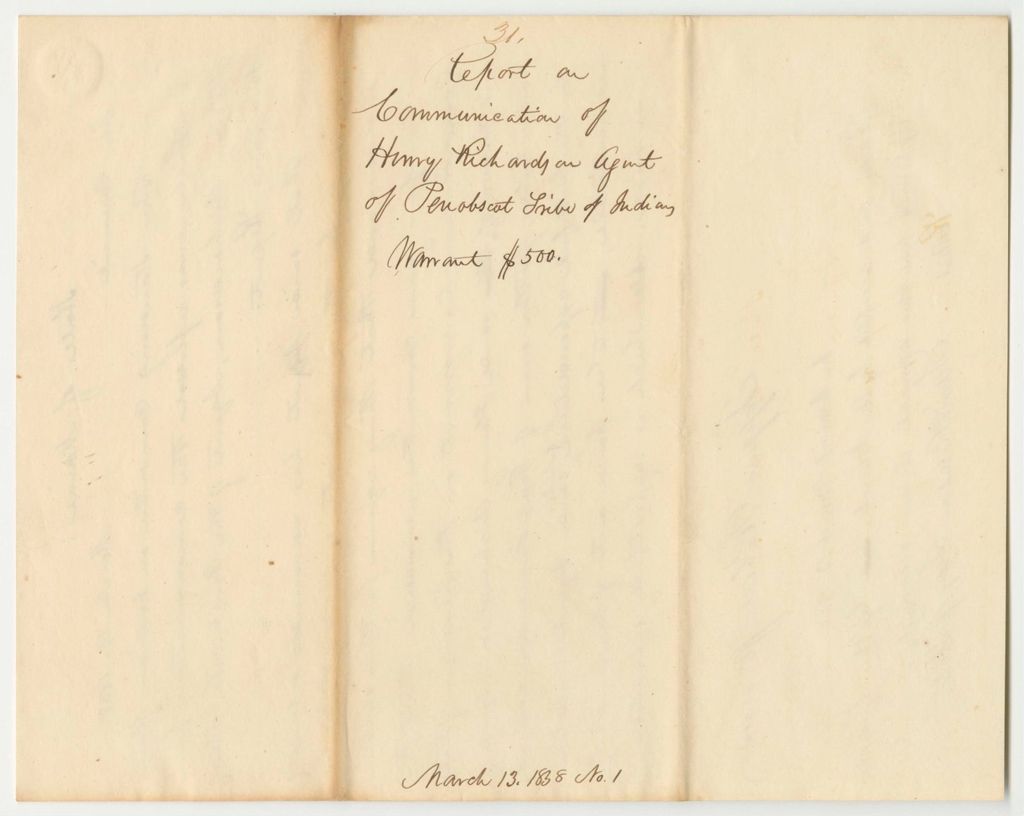 31.
Report on
Communication of
Henry Richardson Agent
of Penobscot Tribe of Indians
Warrant $500.
March 13. 1838 No. 1